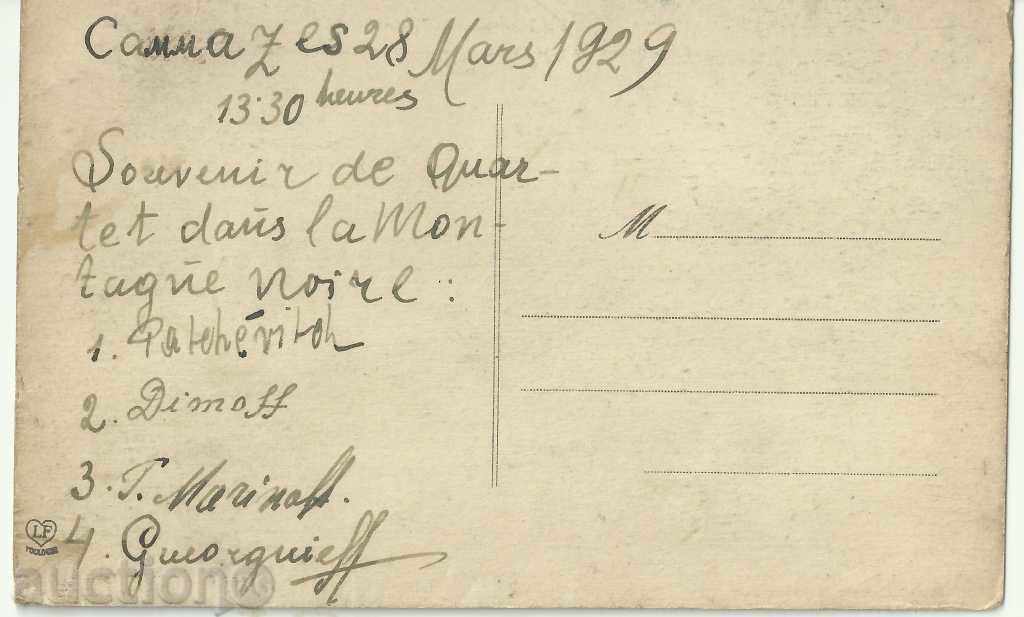 Cammazes 28 Mars 1929
13.30 heures
Souvenir de Quar-
tet dans la Mon-
tagne noire :
1. Patchévitch
2. Dimoff
3. T. Marinoff.
4. Gueorguieff
M
LF
TOULOUSE
auction